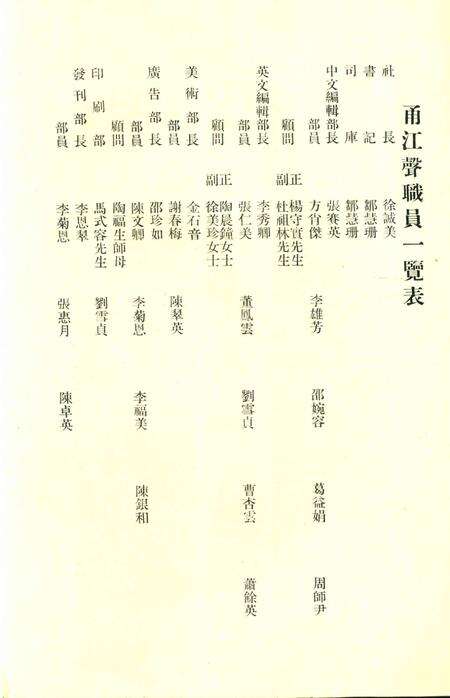 甬江聲職員一覽表
社長 徐誠美
書記 鄒慧珊
司庫 鄒慧珊
中文編輯部長 張賽英
部員 方肖傑 李雄芳 邵婉容 葛益娟 周師尹
顧問 正 楊守實先生
副 杜祖林先生
英文編輯部長 李秀卿
部員 張仁美 董鳳雲 劉雪貞 曹杏雲 蕭餘英
顧問 正 陶晨鐘女士
副 徐美珍女士
美術部長 金石音
部員 謝春梅 陳翠英
廣告部長 邵珍如
部員 陳文卿 李菊恩 李福美 陳銀和
顧問 陶福生師母
印刷部 馬式容先生 劉雪貞
發刊部長 李恩翠
部員 李菊恩 張惠月 陳卓英